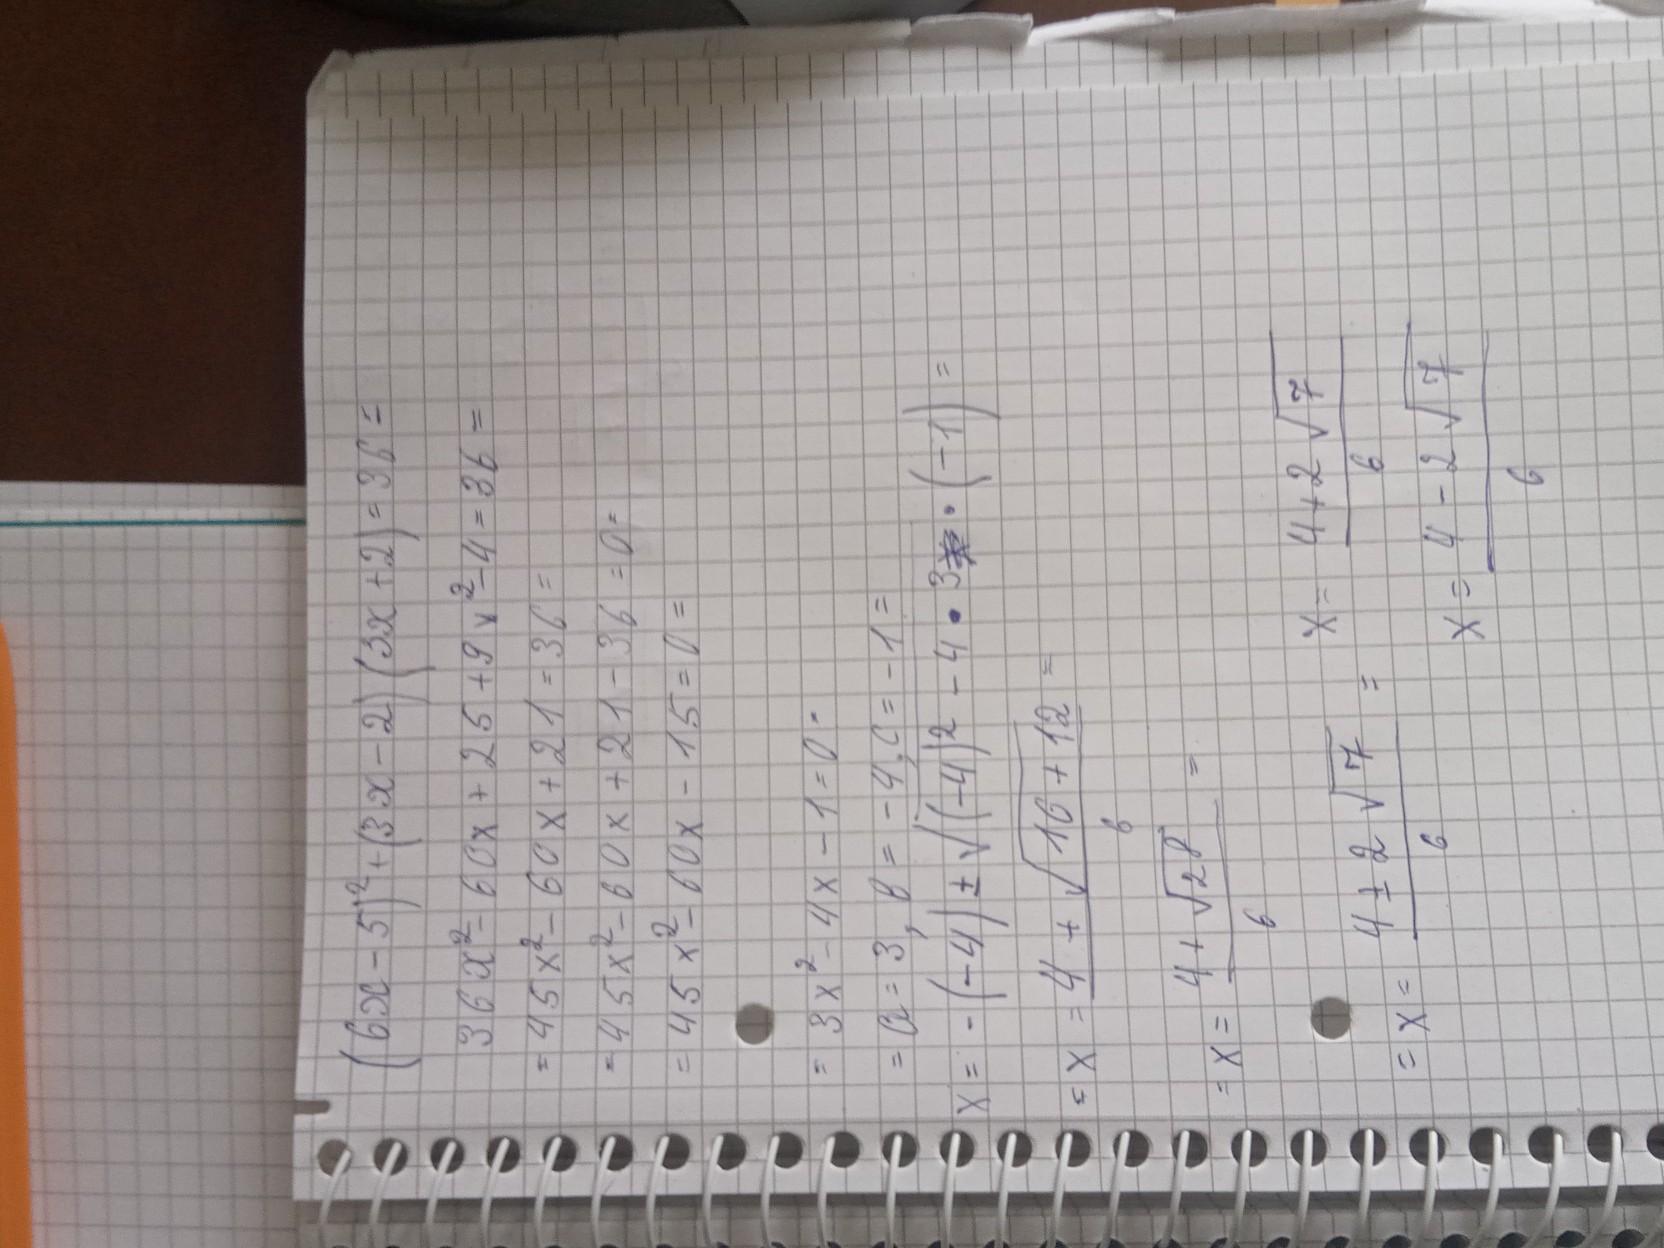 (6x-5)²+(3x-2)(3x+2)=36=
36x²-60x+25+9x²-4=36=
=45x²-60x+21=36=
=45x²-60x+21-36=0=
=45x²-60x-15=0=
=3x²-4x-1=0=
=a=3, b=-4, c=-1=
x=-(-4)±√(-4)²-4•3•(-1)=
=x=4+√16+12=
6
=x=4+√28=
6
=x=4±2√7=
6
x=4+2√7
6
x=4-2√7
6